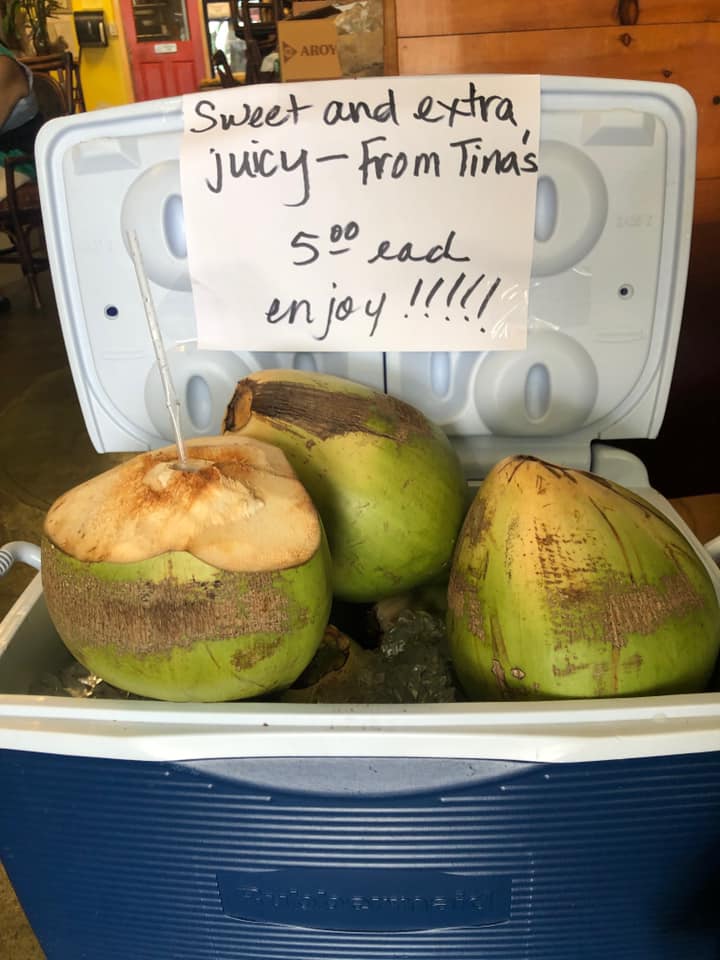 AROY
Sweet and extra,
juicy – From Tina's
5.00 ead
enjoy !!!!!
Rubbermaid